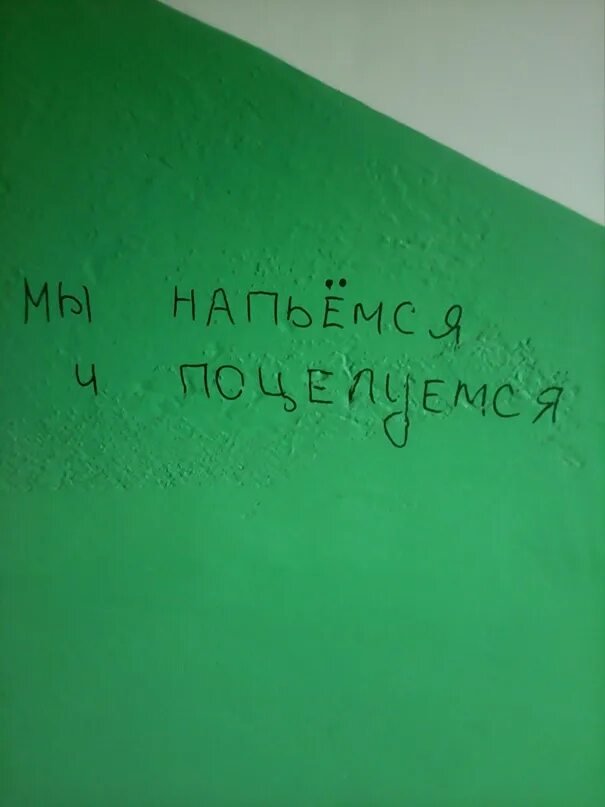 мы напьёмся
и поцелуемся